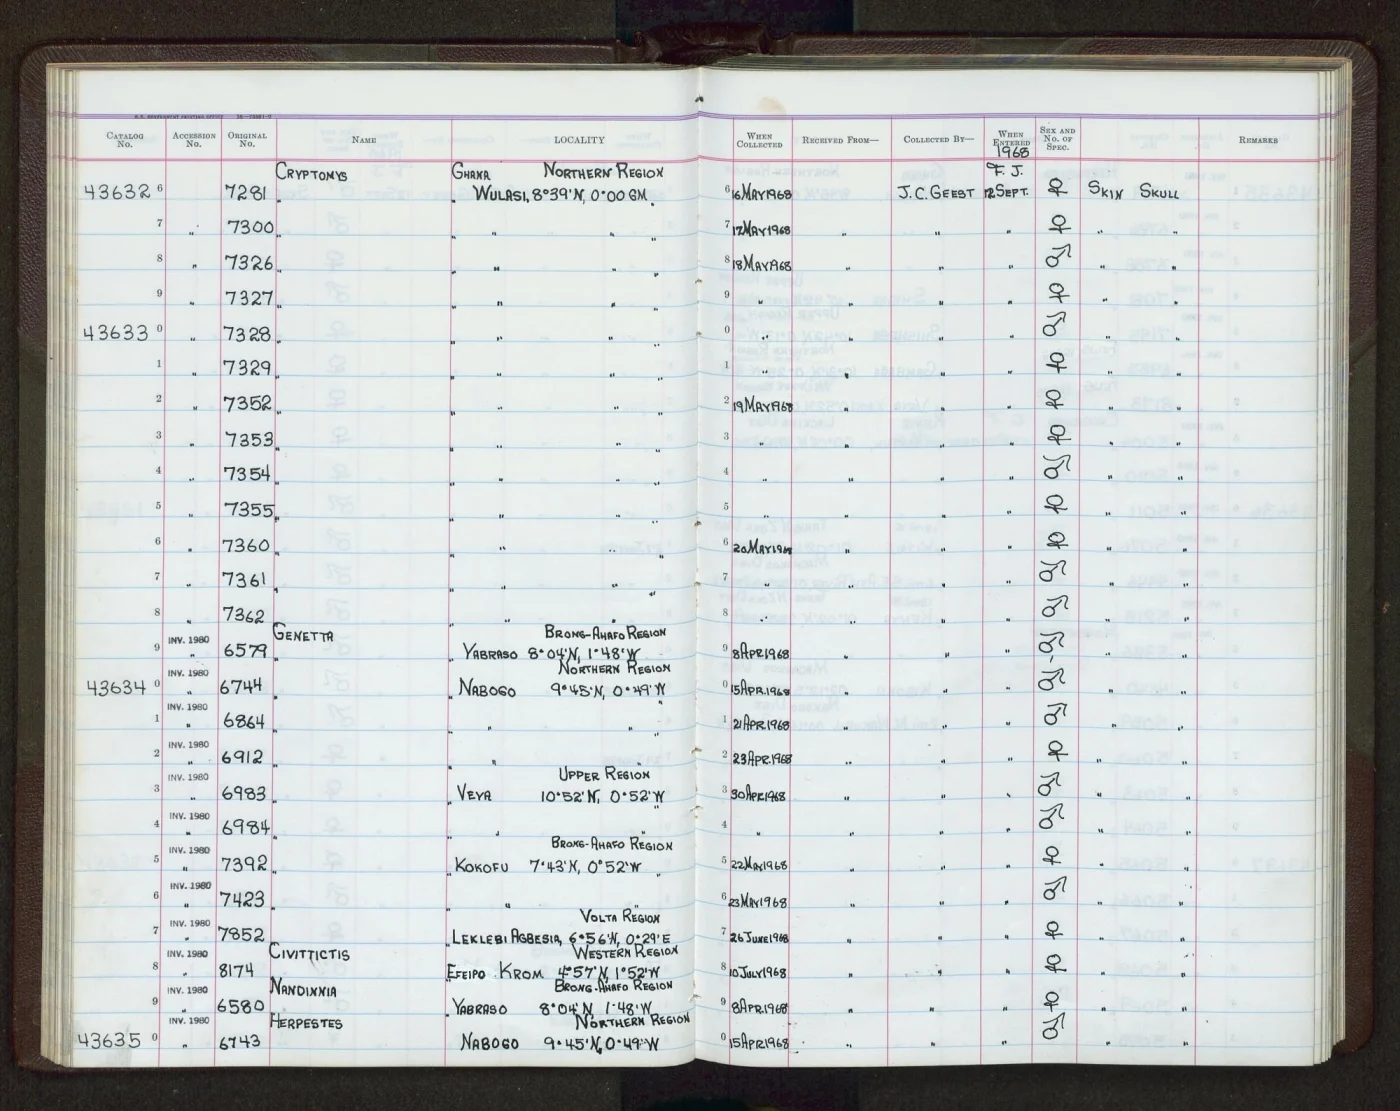 U.S. GOVERNMENT PRINTING OFFICE 16—73861-2
CATALOG No. ACCESSION No. ORIGINAL No. NAME LOCALITY WHEN COLLECTED RECEIVED FROM— COLLECTED BY— WHEN ENTERED SEX AND No. OF SPEC. REMARKS
1968
CRYPTOMYS GHANA NORTHERN REGION F. J.
43632 6 7281 " " WULASI, 8°39'N, 0°00 GM 6 16 MAY 1968 J.C. GEEST 12 SEPT. ♀ SKIN SKULL
7 " 7300 " " " " " 7 17 MAY 1968 " " " ♀ " "
8 " 7326 " " " " " 8 18 MAY 1968 " " " ♂ " "
9 " 7327 " " " " " 9 " " " " ♀ " "
43633 0 " 7328 " " " " " 0 " " " " ♂ " "
1 " 7329 " " " " " 1 " " " " ♀ " "
2 " 7352 " " " " " 2 19 MAY 1968 " " " ♀ " "
3 " 7353 " " " " " 3 " " " " ♀ " "
4 " 7354 " " " " " 4 " " " " ♂ " "
5 " 7355 " " " " " 5 " " " " ♀ " "
6 " 7360 " " " " " 6 20 MAY 1968 " " " ♀ " "
7 " 7361 " " " " " 7 " " " " ♂ " "
8 " 7362 " " " " " 8 " " " " ♂ " "
INV. 1980 GENETTA BRONG-AHAFO REGION
9 " 6579 " YABRASO 8°04'N, 1°48'W 9 8 APR. 1968 " " " ♂ " "
INV. 1980 NORTHERN REGION
43634 0 " 6744 " " NABOGO 9°45'N, 0°49'W 0 15 APR. 1968 " " " ♂ " "
INV. 1980
1 " 6864 " " " " " 1 21 APR. 1968 " " " ♂ " "
INV. 1980
2 " 6912 " " " " 2 23 APR. 1968 " " " ♀ " "
INV. 1980 UPPER REGION
3 " 6983 " " VEYA 10°52'N, 0°52'W 3 30 APR. 1968 " " " ♂ " "
INV. 1980
4 " 6984 " " " " 4 " " " " ♂ " "
INV. 1980 BRONG-AHAFO REGION
5 " 7392 " " KOKOFU 7°43'N, 0°52'W 5 22 MAY 1968 " " " ♀ " "
INV. 1980
6 " 7423 " " " " 6 23 MAY 1968 " " " ♂ " "
INV. 1980 VOLTA REGION
7 " 7852 " " LEKLEBI AGBESIA, 6°56'N, 0°29'E 7 26 JUNE 1968 " " " ♀ " "
INV. 1980 CIVITTICTIS WESTERN REGION
8 " 8174 " EFEIPO KROM 4°57'N, 1°52'W 8 10 JULY 1968 " " " ♀ " "
INV. 1980 NANDINNIA BRONG-AHAFO REGION
9 " 6580 " YABRASO 8°04'N 1°48'W 9 8 APR. 1968 " " " ♀ " "
INV. 1980 HERPESTES NORTHERN REGION
43635 0 " 6743 NABOGO 9°45'N, 0°49'W 0 15 APR. 1968 " " " ♂ " "